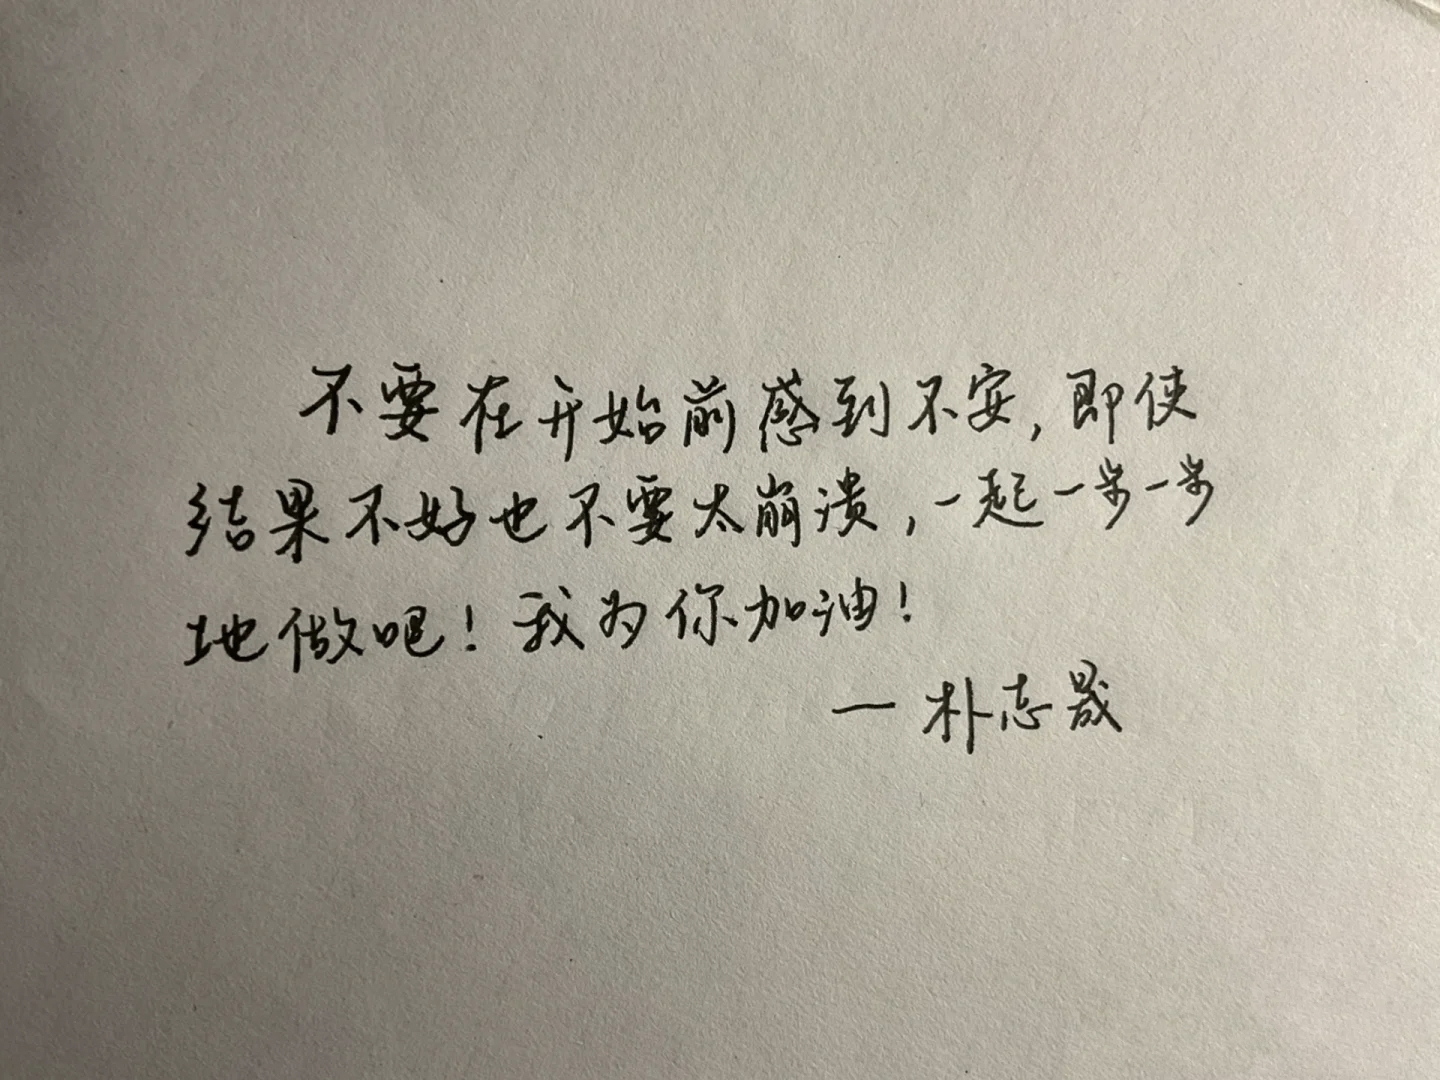 不要在开始前感到不安,即使
结果不好也不要太崩溃,一起一步一步
地做吧!我为你加油!
一朴志晟